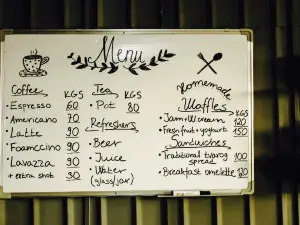 Menu
Coffee KGS
Espresso 60
Americano 70
Latte 90
Foamccino 90
Lavazza 90
+ extra shot 30
Tea KGS
• Pot 80
Refreshers
• Beer
• Juice
• Water
(glass/jar)
homemade
Waffles KGS
• Jam + W cream 120
• Fresh fruit + yoghurt 150
Sandwiches
• Traditional tvarog 100
spread
• Breakfast omelette 120